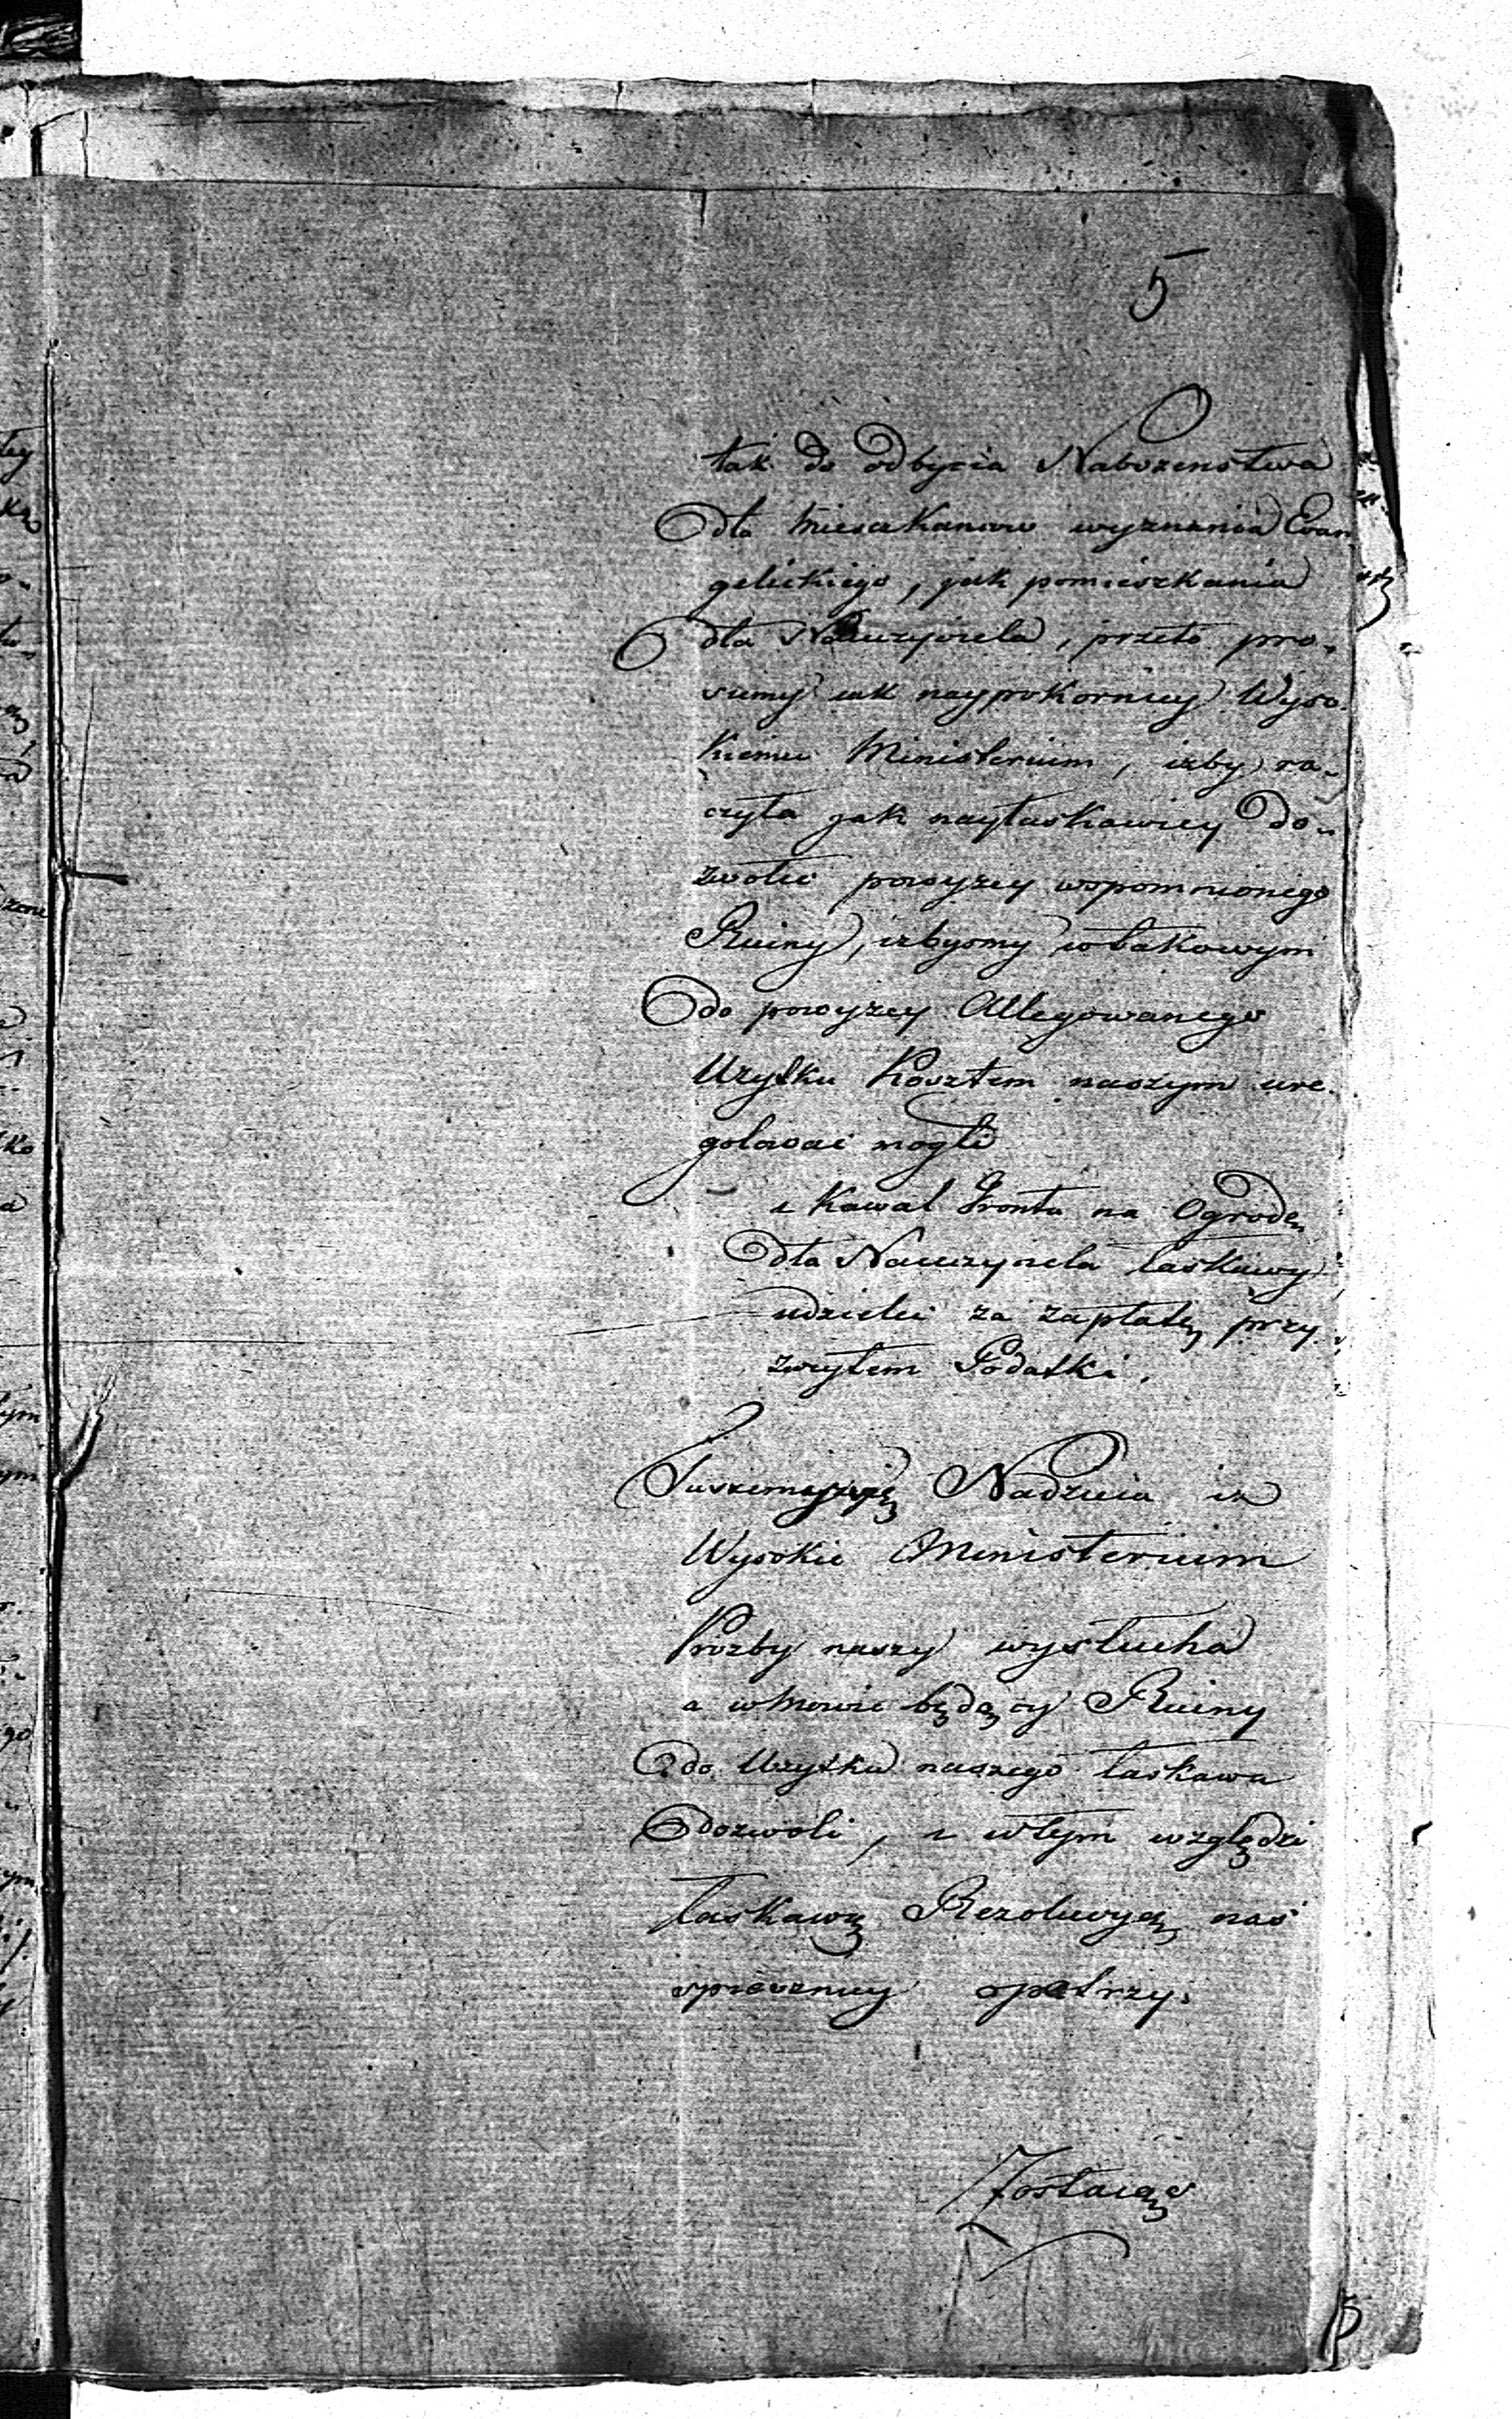 5
tak do odbycia Nabozenstwa
dla Mieszkancow wyznania Ewan
gelickiego, jak pomieszkania
dla Nauczyciela, przeto pro„
siemy iak naypokorniey Wyso„
kiemu Ministerium, izby ra„
czyla jak naylaskawiey do„
zwolic powyzey wspomnionego
Ruiny, izbysmy w takowym
do powyzey Allegowanego
Uzytku Kosztem naszym ure„
golowac mogli
i Kawal Grontu na Ogrode„
dla Nauczyciela laskawy
udzielic za zaplatę przy„
zwoytem Podatki.
Nadzieia iz
Wysokie Ministerium
Prozby naszy wyslucha
a w Mowie będący Ruiny
do Uzytku naszego laskawa
dozwoli, i w tym względzi
laskawą Rezolucyą nas
spieszniey opatrzy.
Zostaiąc